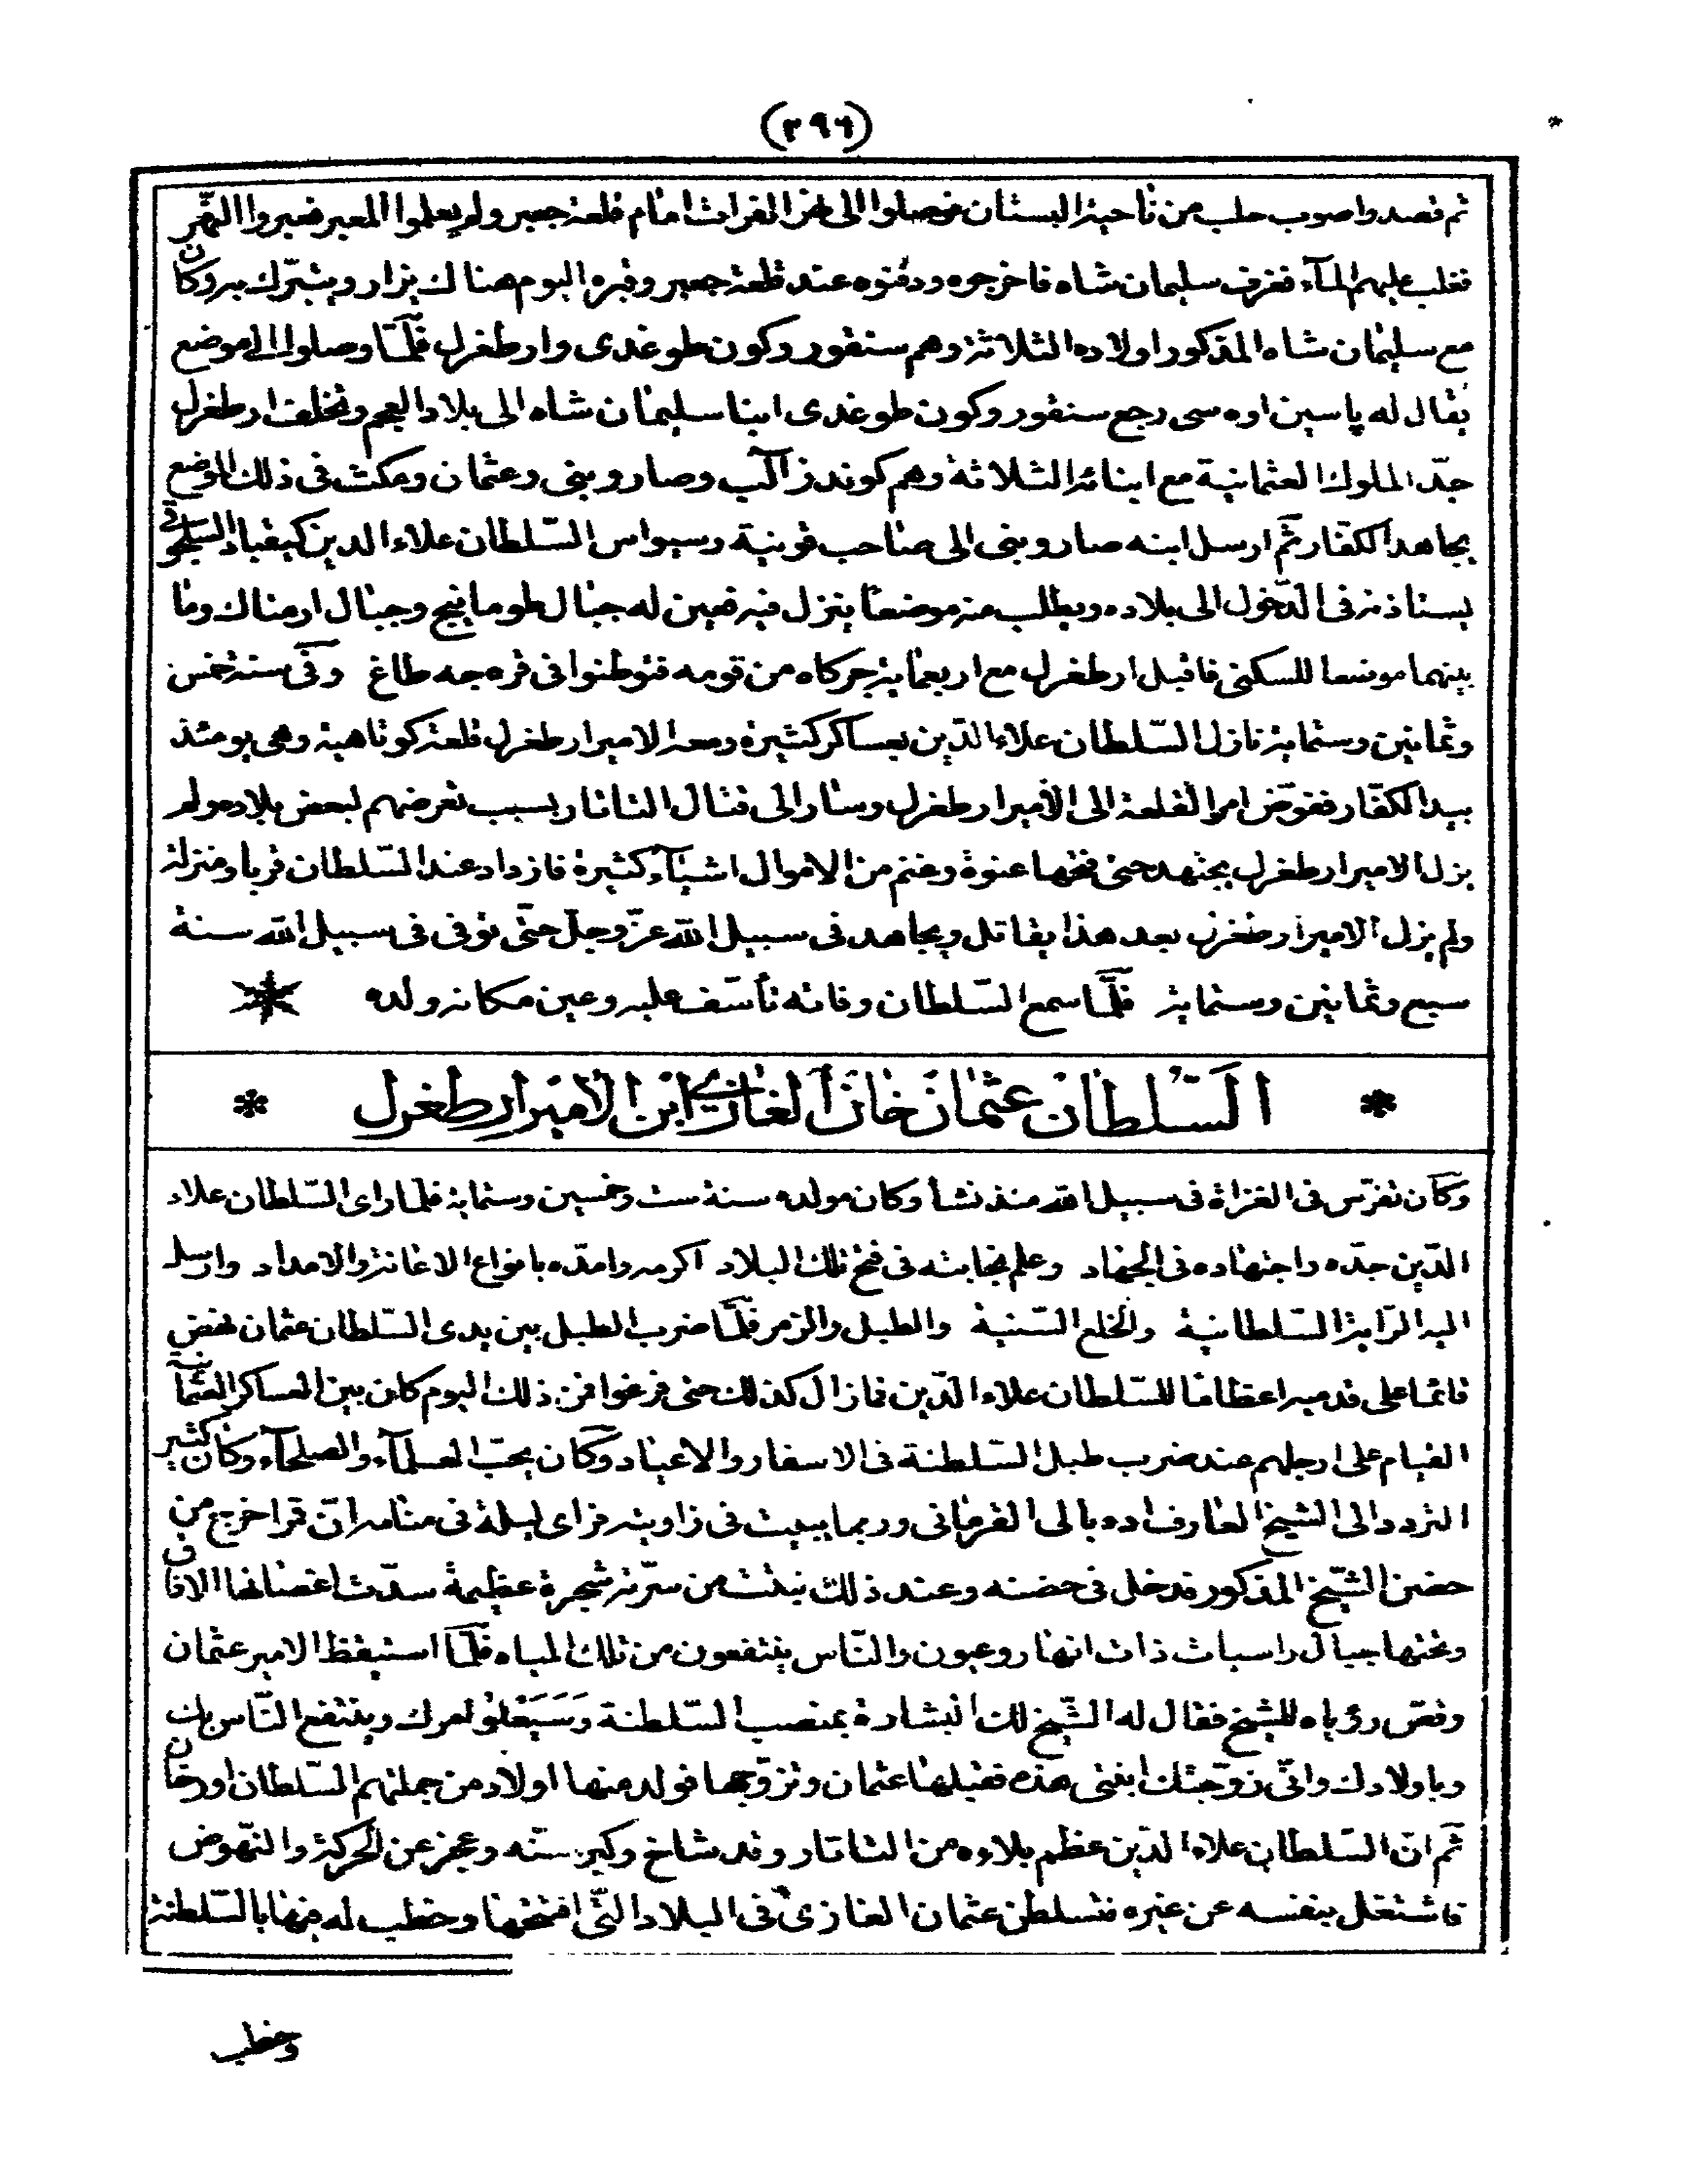 (٢٩٦)
ثم قصدوا صوب حلب من ناحية البستان فوصلوا الى نهر الفرات امام قلعة جعبر ولم يعلموا المعبر فعبروا النهر
فغلب عليهم المآء فغرق سليمان شاه فاخرجوه ودفنوه عند قلعة جعبر وقبره اليوم هناك يزار ويتبرّك به وكان
مع سليمان شاه المذكور اولاده الثلاثة وهم سنقور وكون طوغدى وارطغرل فلمّا وصلوا الى موضع
يقال له پاسين اوه سى رجع سنقور وكون طوغدى ابنا سليمان شاه الى بلاد العجم وتخلف ارطغرل
جدّ الملوك العثمانية مع ابنائه الثلاثة وهم كوندز آلب وصارو بنى وعثمان ومكث فى ذلك الموضع
يجاهد الكفّار ثم ارسل ابنه صارو بنى الى صاحب قونية وسيواس السّلطان علاء الدين كيقباد السلجوقى
يستاذنه فى الدّخول الى بلاده ويطلب منه موضعا ينزل فيه فعين له جبال طومانيج وجبال ارمناك وما
بينهما موضعا للسكنى فاقبل ارطغرل مع اربعمايه جركاه من قومه فتوطنوا فى قره جه طاغ وفى سنة خمس
وثمانين وستماية نازل السّلطان علاء الدّين بعساكر كثيرة ومعه الامير ارطغرل قلعة كوتاهية وهى يومئذ
بيد الكفّار ففوّض امر القلعة الى الأمير ارطغرل وسار الى قتال التاتار بسبب تعرضهم لبعض بلاده ولم
يزل الامير ارطغرل يجتهد حتى فتحها عنوة وغنم من الاموال اشيآء كثيرة فازداد عند السّلطان قربا ومنزلة
ولم يزل الامير ارطغرل بعد هذا يقاتل ويجاهد فى سبيل الله عزّ وجلّ حتّى توفى فى سبيل الله سنة
سبع وثمانين وستماية فلمّا سمع السّلطان وفاته تأسّف عليه وعين مكانه ولده *
* السّلطان عثمان خان الغازى ابن الامير ارطغرل *
وكان تفرّس فى الغزاة فى سبيل الله منذ نشأ وكان مولده سنة ست وخمسين وستماية فلما راى السّلطان علاء
الدّين جدّه واجتهاده فى الجهاد وعلم نجابته فى فتح تلك البلاد اكرمه وامدّه بانواع الاغاثة والامداد وارسل
اليه الرّاية السّلطانية والخلع السّنية والطبل والزمر فلمّا ضرب الطبل بين يدى السّلطان عثمان نهض
قائما على قدميه اعظاما للسّلطان علاء الدّين فما زال كذلك حتى فرغوا فمن ذلك اليوم كان بين العساكر العثمانية
القيام على ارجلهم عند ضرب طبل السّلطنة فى الاسفار والاعياد وكان يحبّ العلمآء والصلحآء وكان كثير
التردد الى الشيخ العارف اده بالى القرمانى وربما يبيت فى زاويته فراى ليلة فى منامه انّ قمرا خرج من
حضن الشّيخ المذكور فدخل فى حضنه وعند ذلك نبتت من سرّته شجرة عظيمة سدّت اغصانها الافاق
وتحتها جبال راسيات ذات انهار وعيون والنّاس ينتفعون من تلك المياه فلمّا استيقظ الامير عثمان
وقصّ رؤياه للشيخ فقال له الشّيخ لك البشارة بمنصب السّلطنة وَسَيَعْلُو امرك وينتفع النّاس بك
وباولادك وانّى زوّجتك ابنتى هذه فقبلها عثمان وتزوّجها فولد منها اولاد من جملتهم السّلطان اورخان
ثم انّ السّلطان علاء الدّين عظم بلاوه من التاتار وقد شاخ وكبر سنّه وعجز عن الحركة والنّهوض
فاشتغل بنفسه عن غيره فتسلطن عثمان الغازى فى البلاد التّى افتتحها وخطب له فيها بالسّلطنة
وخطب